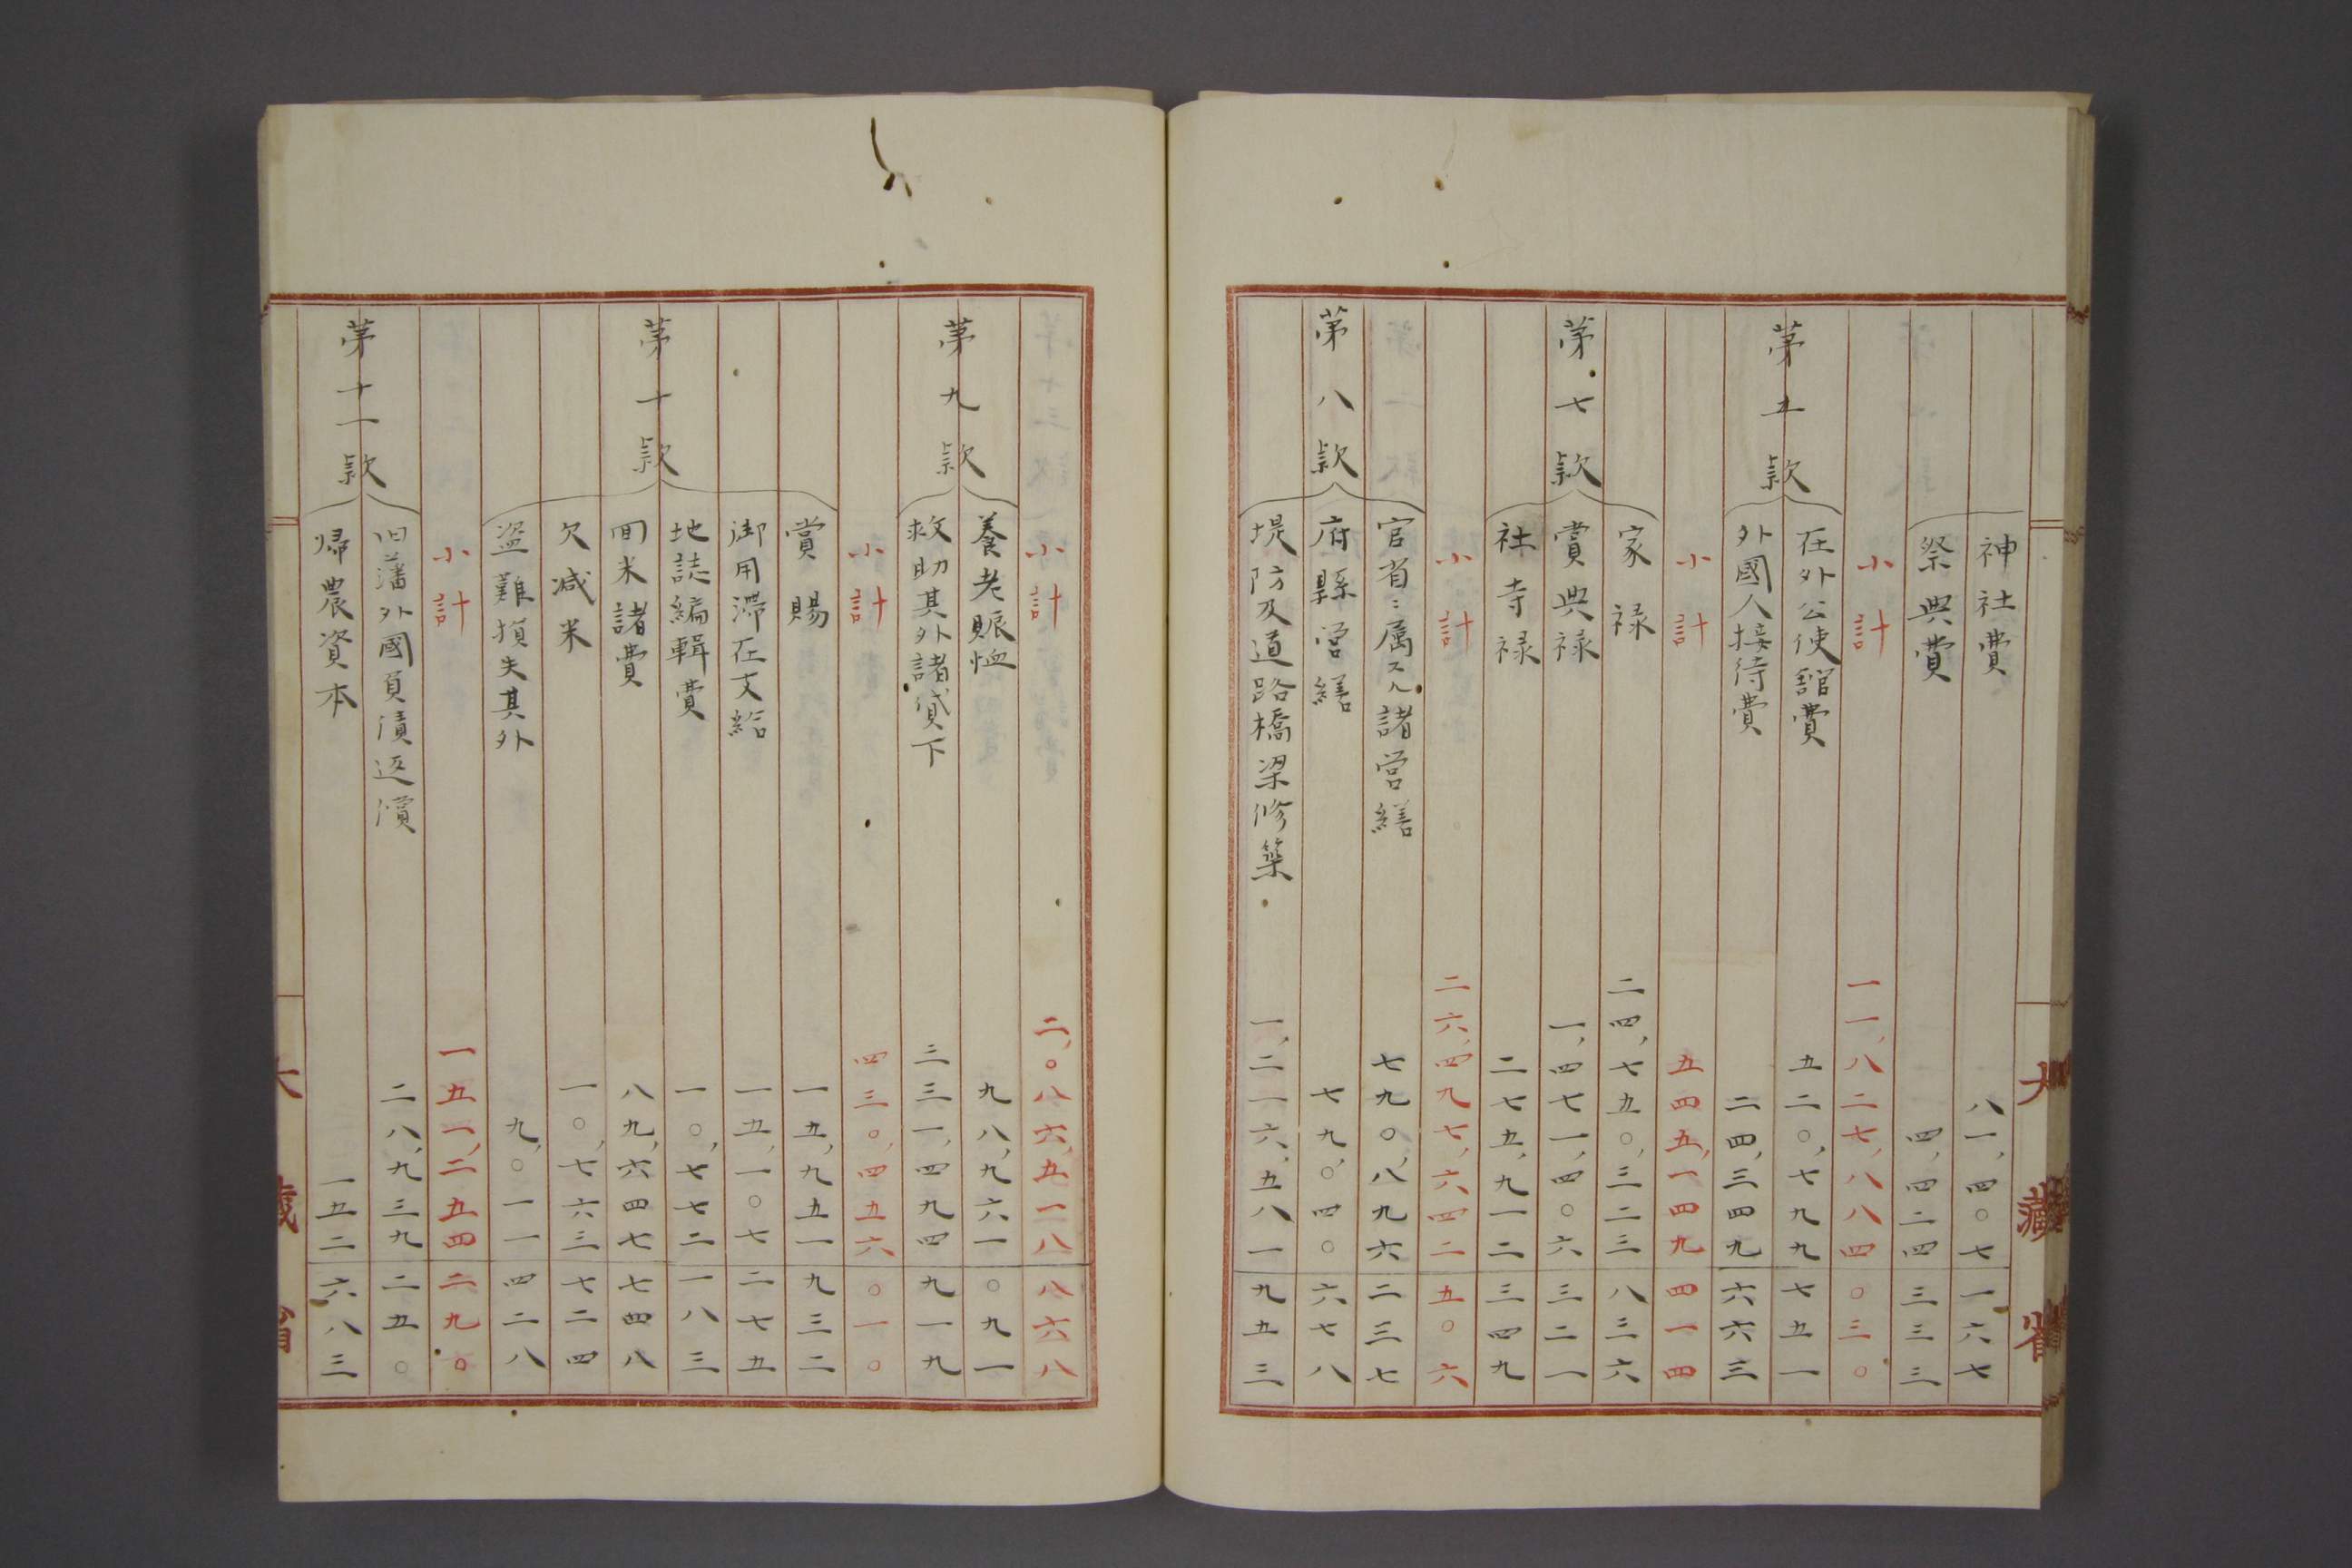 大藏省
神社費 八一,四〇七一六七
祭典費 四,四二四三三三
小計 一一,八二七,八八四〇三〇
第五款
在外公使館費 五二〇,七九九七五一
外國人接待費 二四,三四九六六三
小計 五四五,一四九四一四
第七款
家禄 二四,七五〇,三二三八三六
賞典禄 一,四七一,四〇六三二一
社寺禄 二七五,九一二三四九
小計 二六,四九七,六四二五〇六
第八款
官省ニ属スル諸営繕 七九〇,八九六二三七
府縣営繕 七九,〇四〇六七八
堤防及道路橋梁修築 一,二一六,五八一九五三
小計 二,〇八六,五一八八六八
第九款
養老賑恤 九八,九六一〇九一
救助其外諸貸下 三三一,四九四九一九
小計 四三〇,四五六〇一〇
第十款
賞賜 一五,九五一九三二
御用滞在支給 一五,一〇七二七五
地誌編輯費 一〇,七七二一八三
回米諸費 八九,六四七七四八
欠减米 一〇,七六三七二四
盗難損失其外 九,〇一一四二八
小計 一五一,二五四二九〇
第十一款
旧藩外國負債返償 二八,九三九二五〇
帰農資本 一五二六八三
大藏省